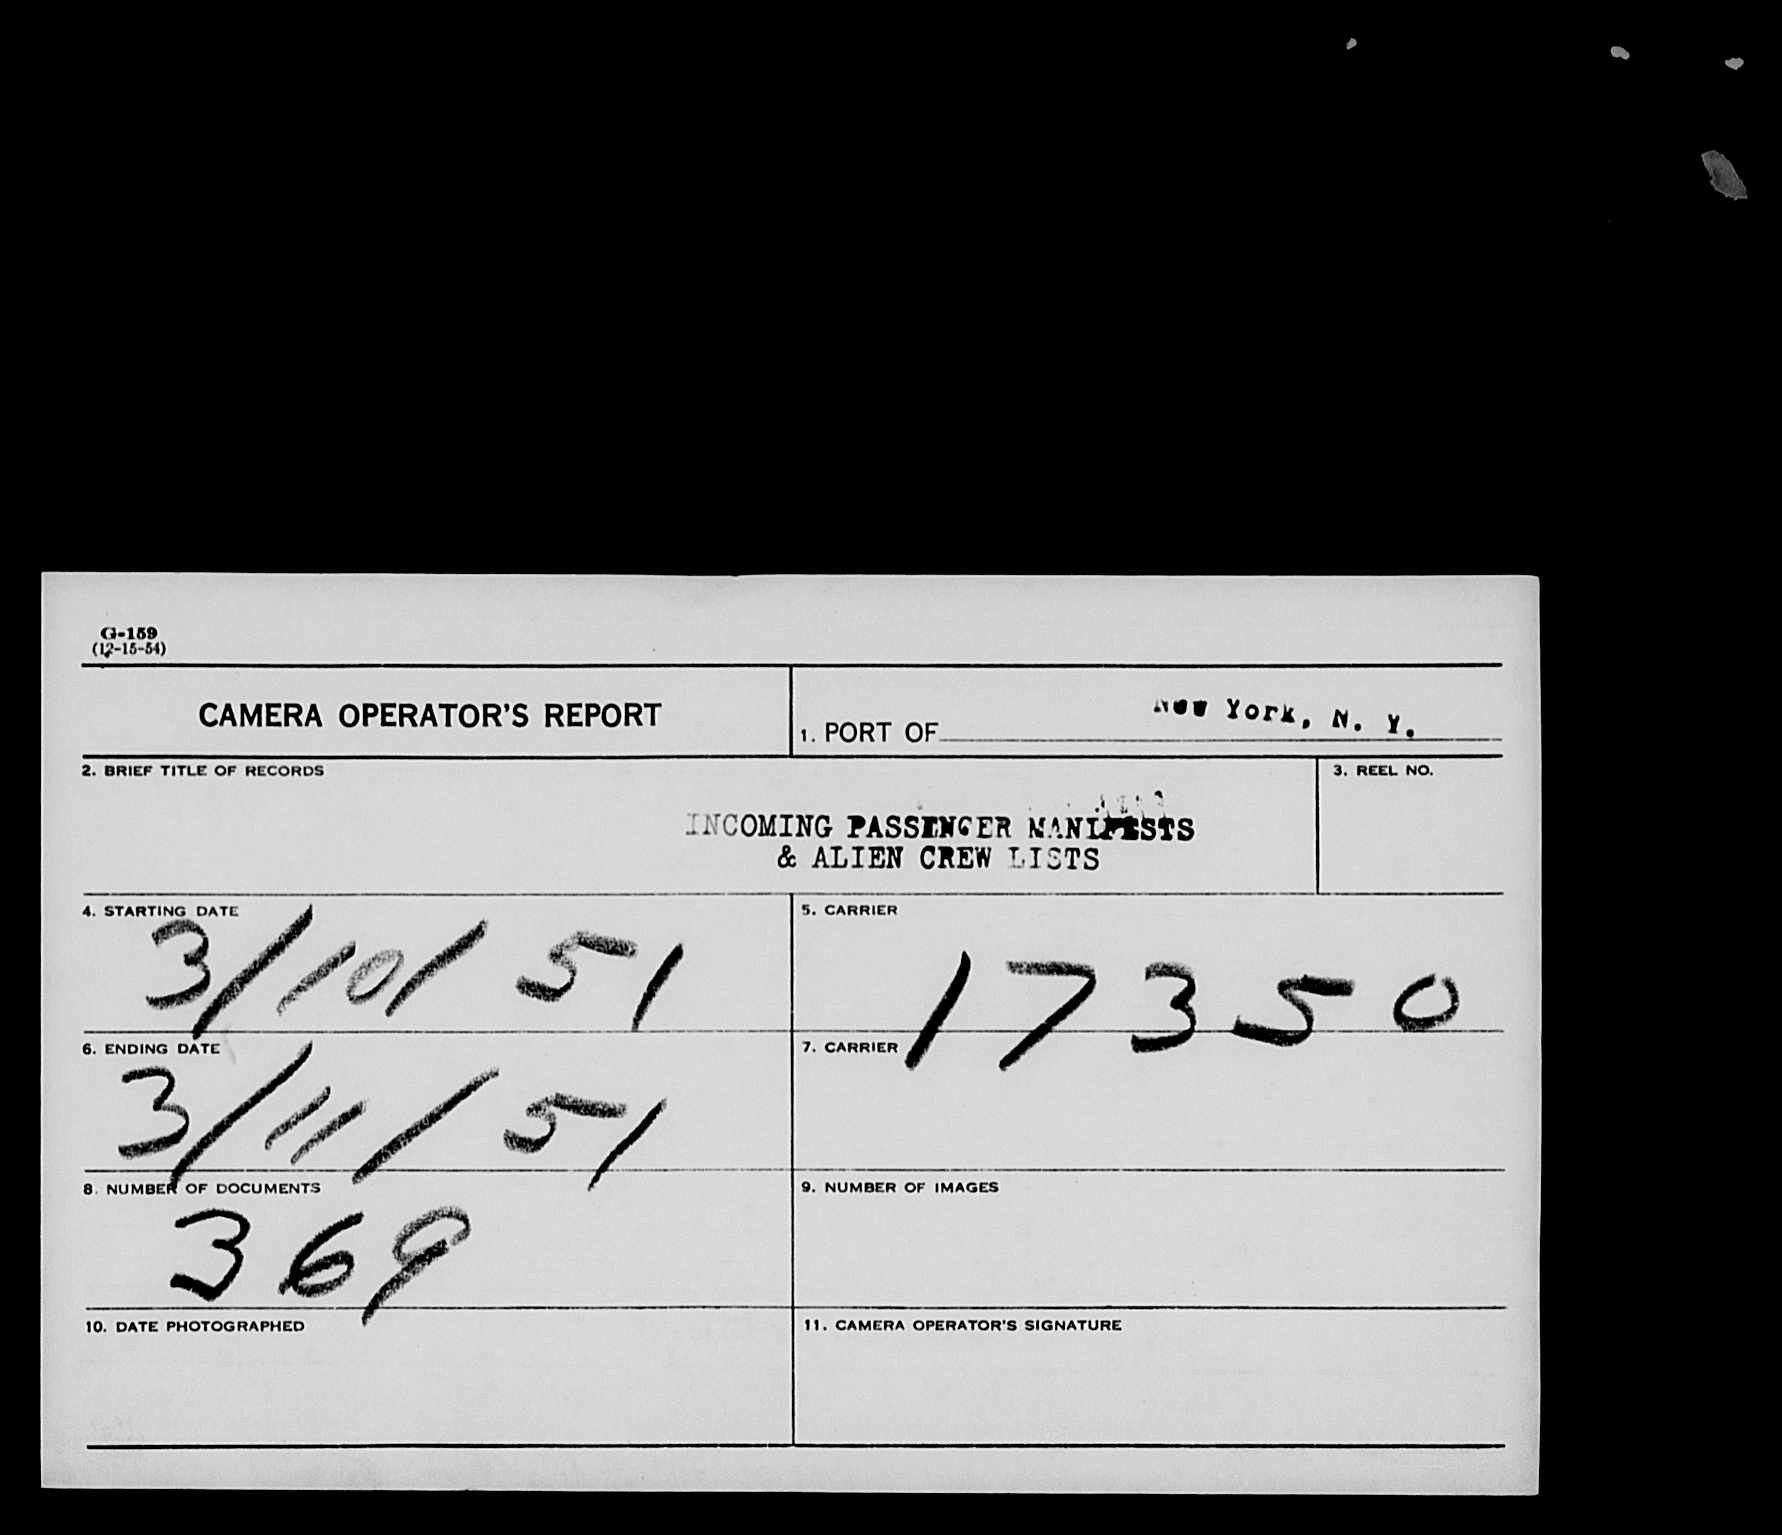 G-159
(12-15-54)
CAMERA OPERATOR'S REPORT
1. PORT OF New York, N. Y.
2. BRIEF TITLE OF RECORDS
INCOMING PASSENGER MANIFESTS
& ALIEN CREW LISTS
3. REEL NO.
4. STARTING DATE
3/10/51
5. CARRIER
17350
6. ENDING DATE
3/11/51
7. CARRIER
8. NUMBER OF DOCUMENTS
369
9. NUMBER OF IMAGES
10. DATE PHOTOGRAPHED
11. CAMERA OPERATOR'S SIGNATURE